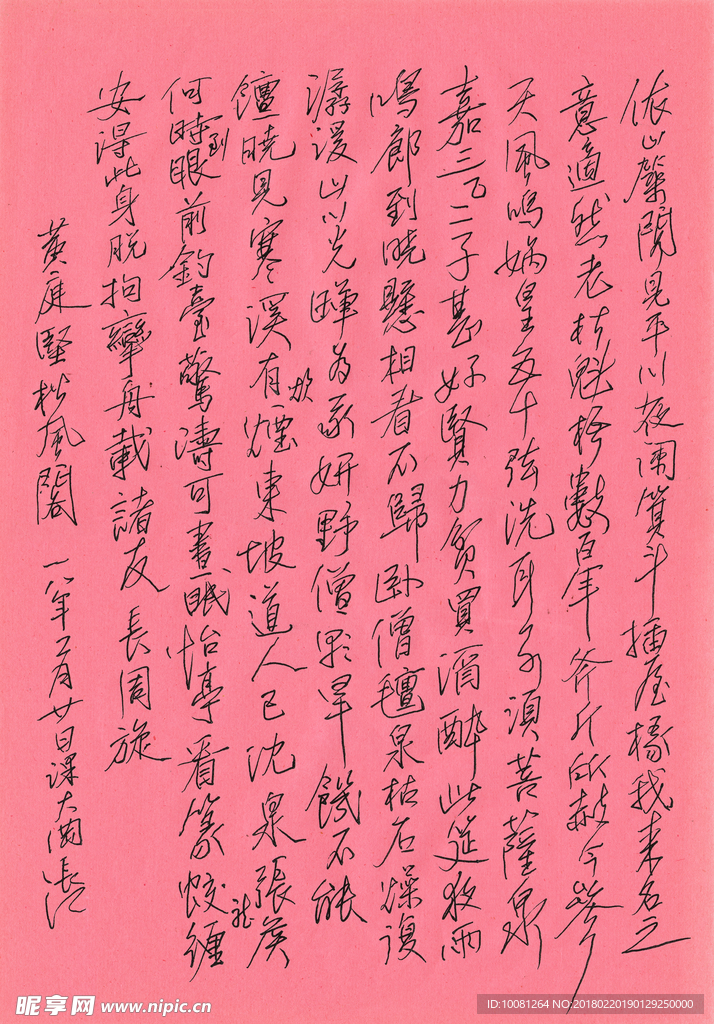 依山築閣見平川夜闌箕斗插屋椽我來名之
意適然老松魁梧數百年斧斤所赦今參
天風鳴媧皇五十弦洗耳不須菩薩泉
嘉三二子甚好賢力貧買酒醉此筵夜雨
鳴廊到曉懸相看不歸臥僧氊泉枯石燥復
潺湲山川光暉為我妍野僧旱饑不能
饘曉見寒溪有炊煙東坡道人已沈泉張侯
何時到眼前釣臺驚濤可晝眠怡亭看篆蛟龍纏
安得此身脫拘攣舟載諸友長周旋
黃庭堅松風閣 一八年二月廿日課大
昵享网 www.nipic.cn
ID:10081264 NO:20180220190129250000